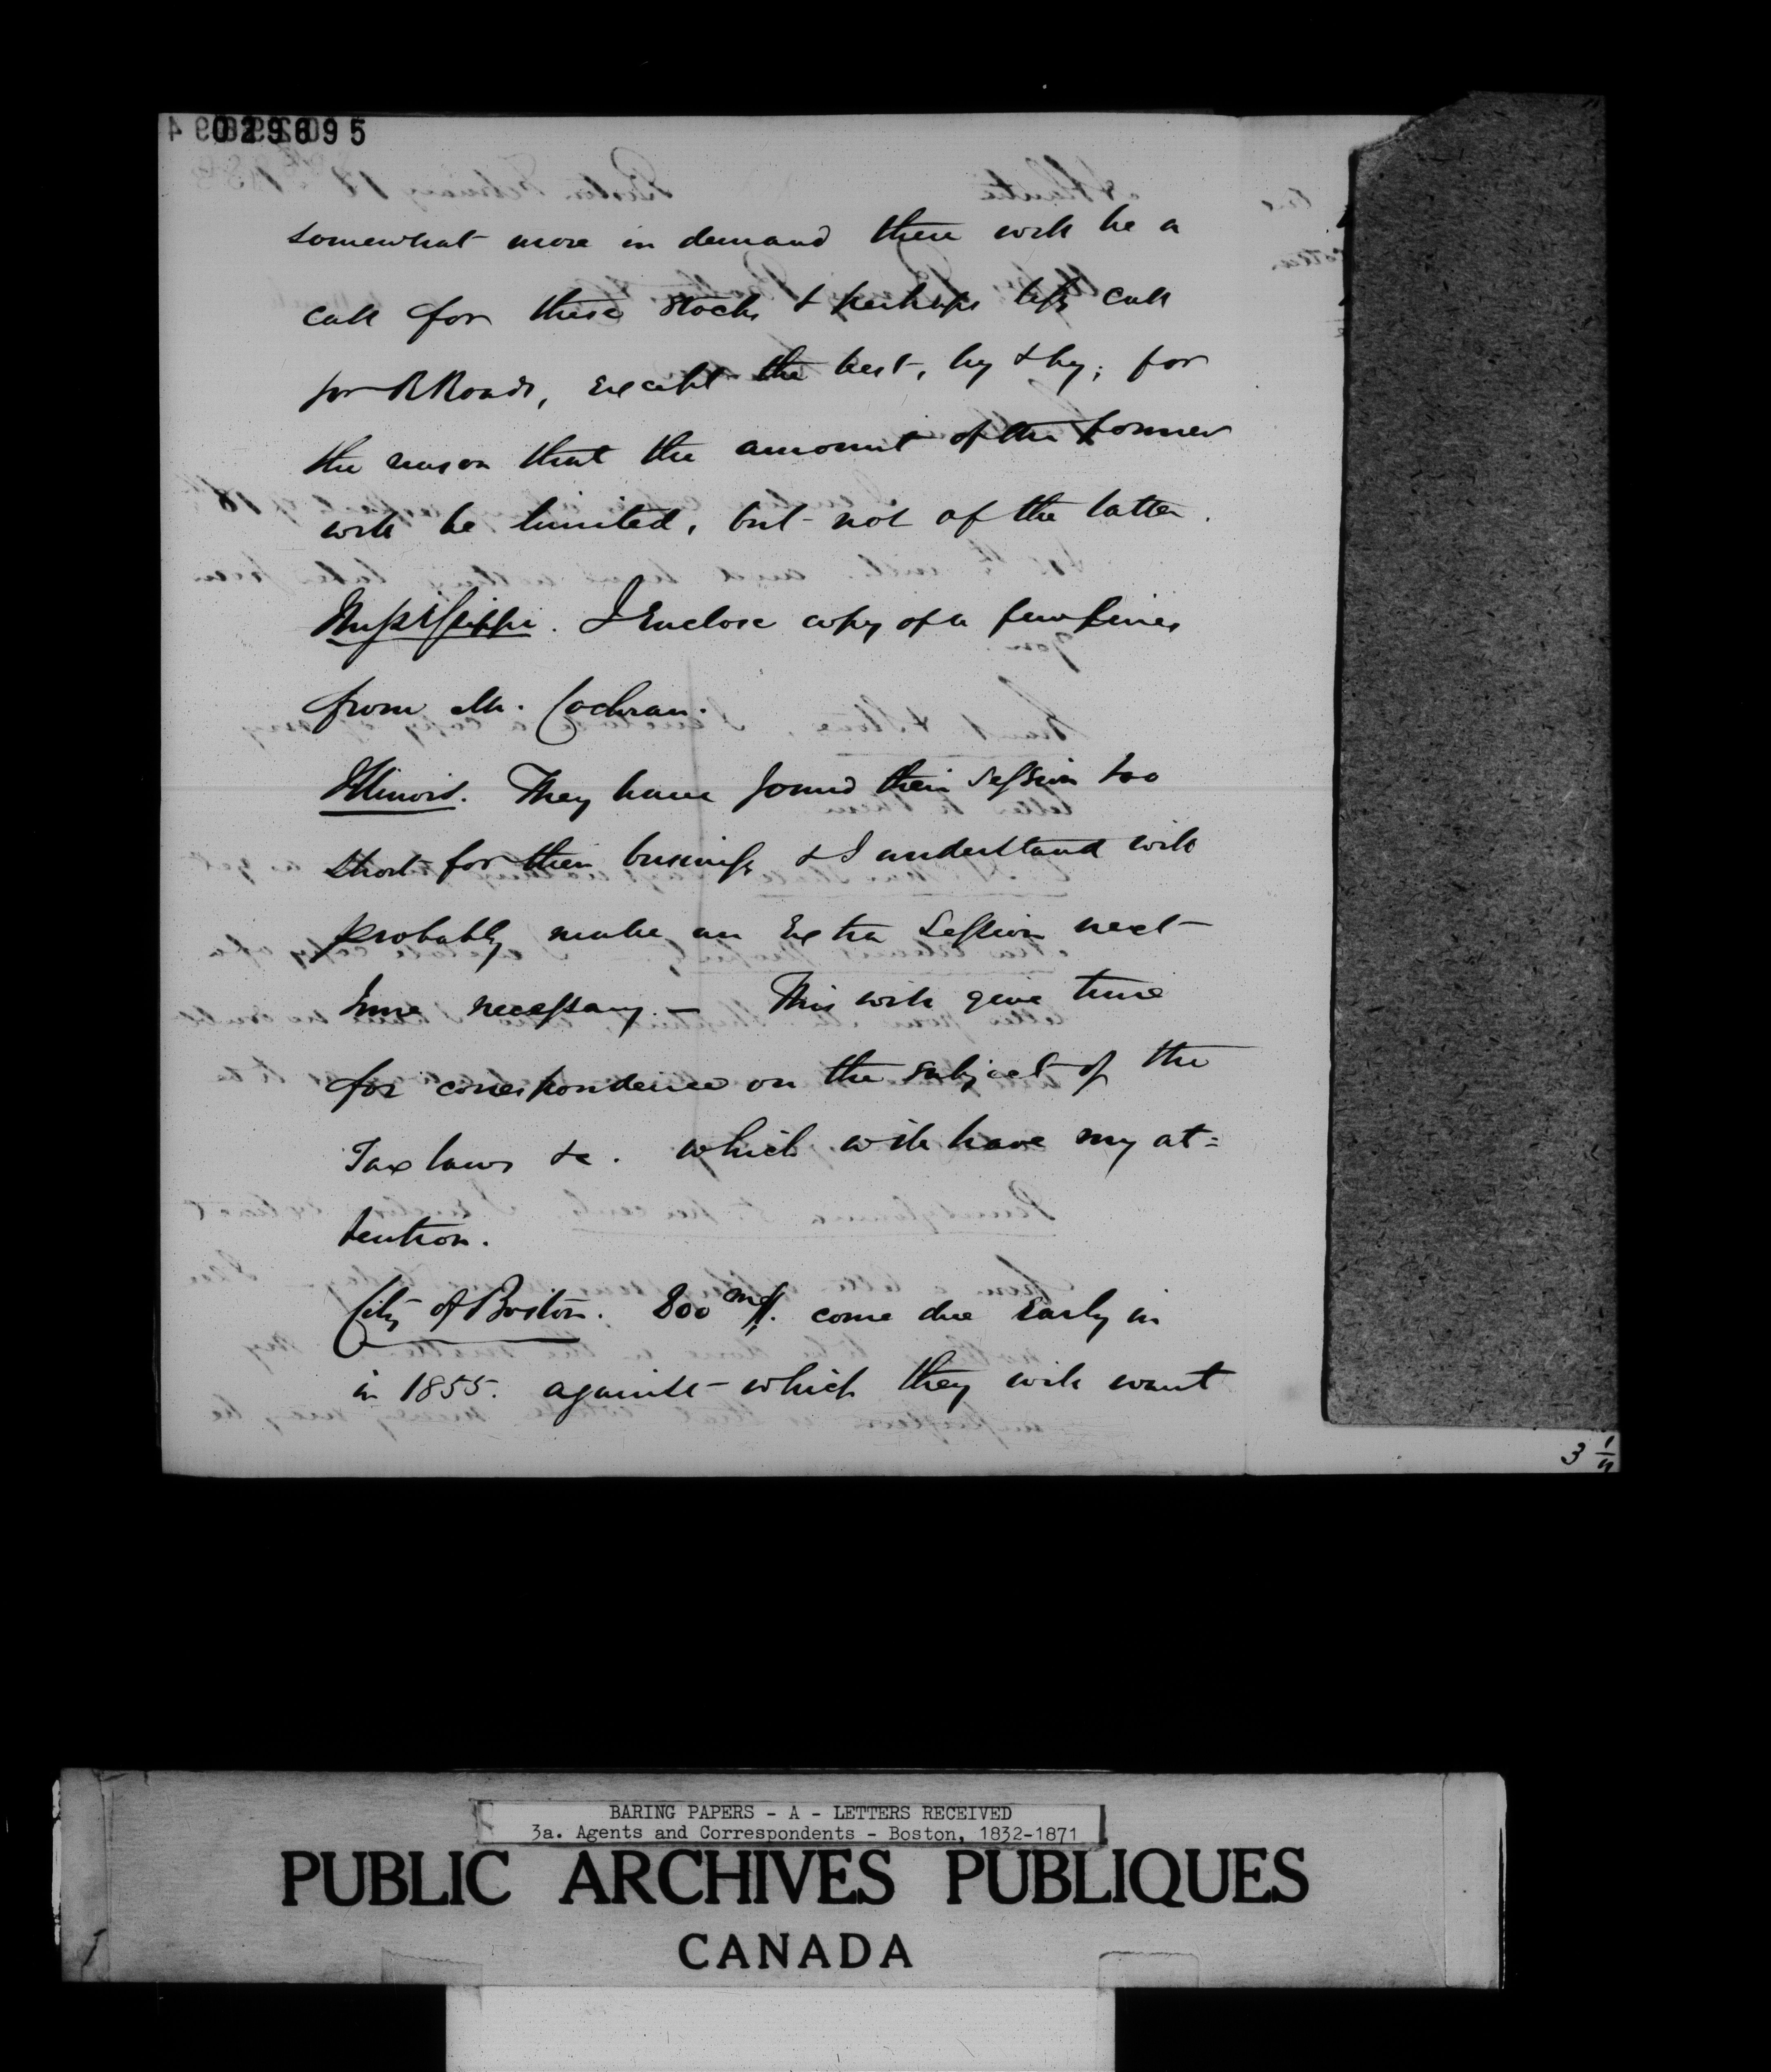 029695
somewhat more in demand there will be a
call for these stocks & perhaps less call
for RRoads, except the best, by & by; for
the reason that the amount of the former
will be limited, but not of the latter.
Mississippi. I Enclose copy of a few lines
from Mr. Cochran.
Illinois. They have found their Session too
short for their business & I understand will
probably make an Extra Session next
June necessary. — This will give time
for correspondence on the subject of the
Tax laws &c. which will have my at=
tention.
City of Boston. 800 m$. come due Early in
in 1855. against which they will want
3 1/4
BARING PAPERS - A - LETTERS RECEIVED
3a. Agents and Correspondents - Boston, 1832-1871
PUBLIC ARCHIVES PUBLIQUES
CANADA